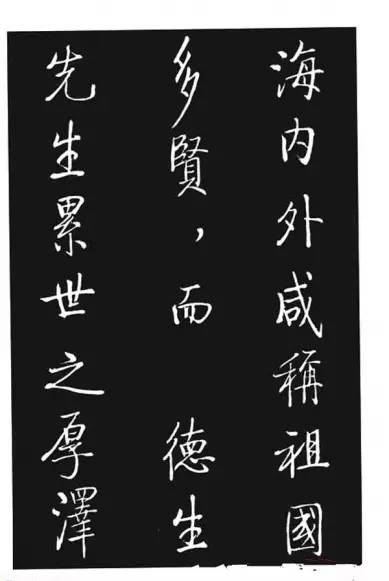 海内外咸稱祖國
多賢，而　德生
先生累世之厚澤